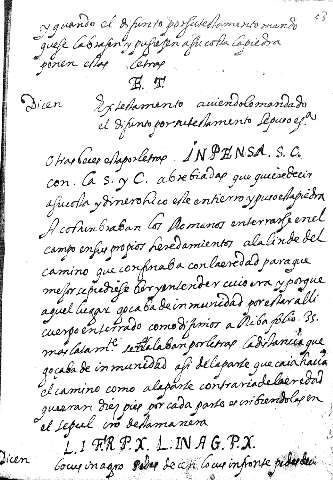 y quando el difunto por su testamento mando
que se labrasen y pusiesen a su costa la piedra
ponen estas letras
E. T.
Dicen Ex testamento aviendolo mandado
el difunto por su testamento se puso esta
Otras veces esta por letras. INPENSA. S. C.
con. la S. y C. abrebiadas que quiere decir
a su costa y dinero hiço este entierro y puso esta piedra
Acostunbraban los Romanos enterrarse en el
campo en sus propios heredamientos a la linde del
camino que confinaba con la eredad para que
mejor se pudiese ber y entender cuio era y porque
aquel lugar gocaba de inmunidad por estar alli
cuerpo enterrado como diximos ariba folio. 35.
mas señalaban por letras la distancia que
gocaba de inmunidad asi de la parte que caia hacia
el camino como a la parte contraria de la eredad
que eran diez pies por cada parte escribiendolas en
el sepulcro desta manera
L. I FR P. X. L. IN AG. P. X.
Dicen locus in agro pedes decen locus in fronte pedes decen